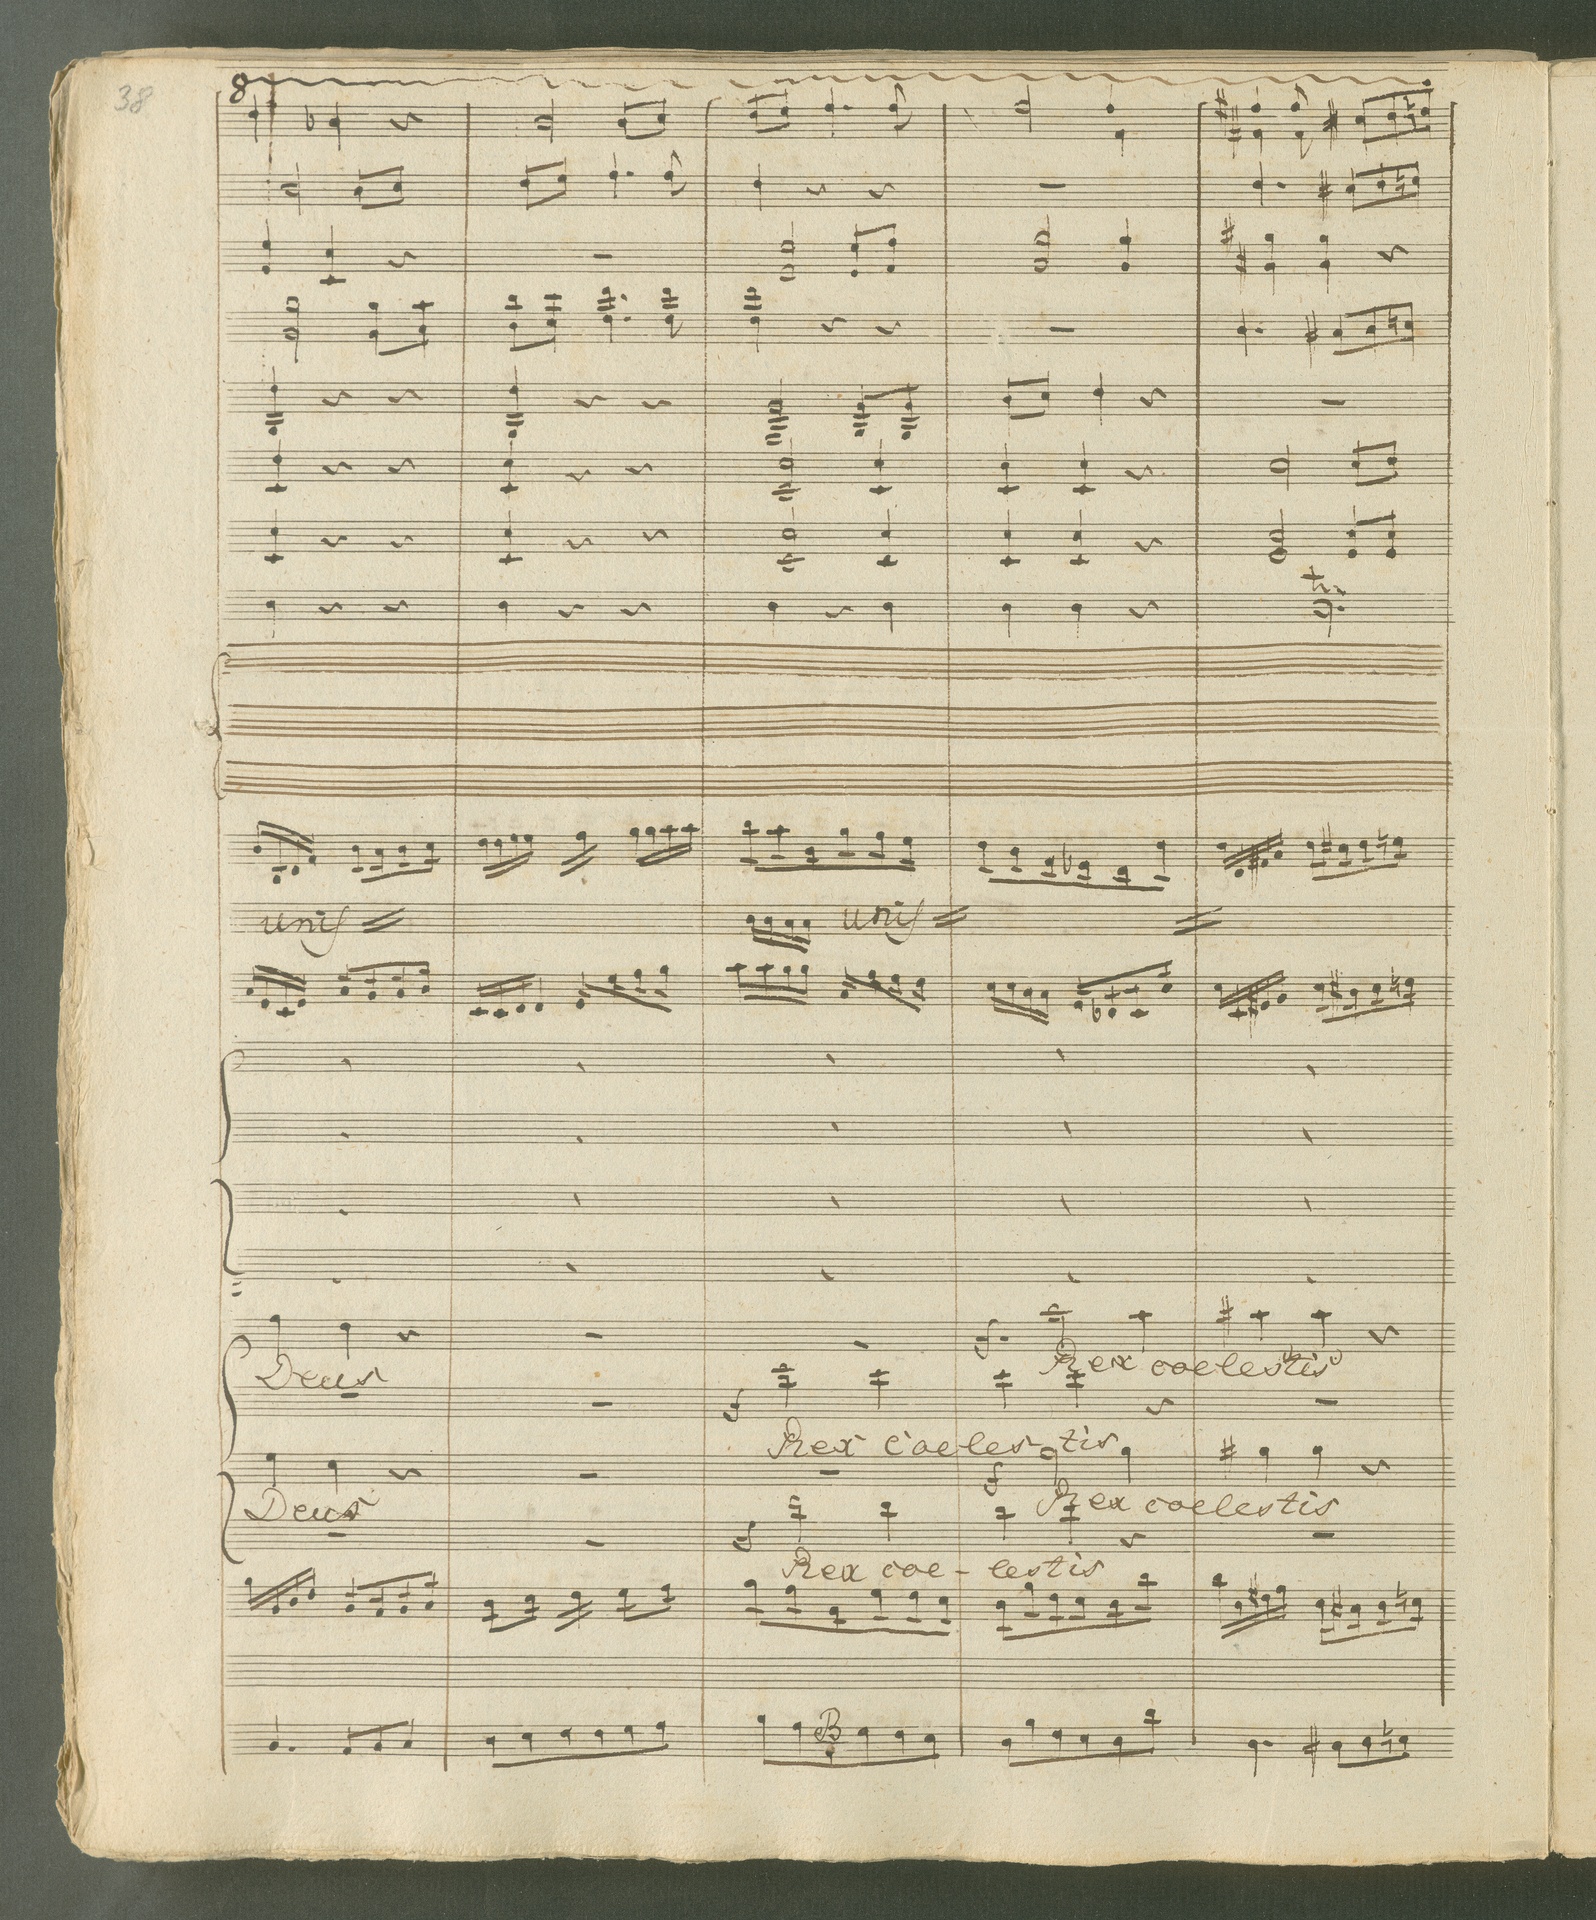 38
8
unis
unis
f.
Deus
Rex coelestis
f
Rex coeles-tis
f
Deus
Rex coelestis
f
Rex coe-lestis
B